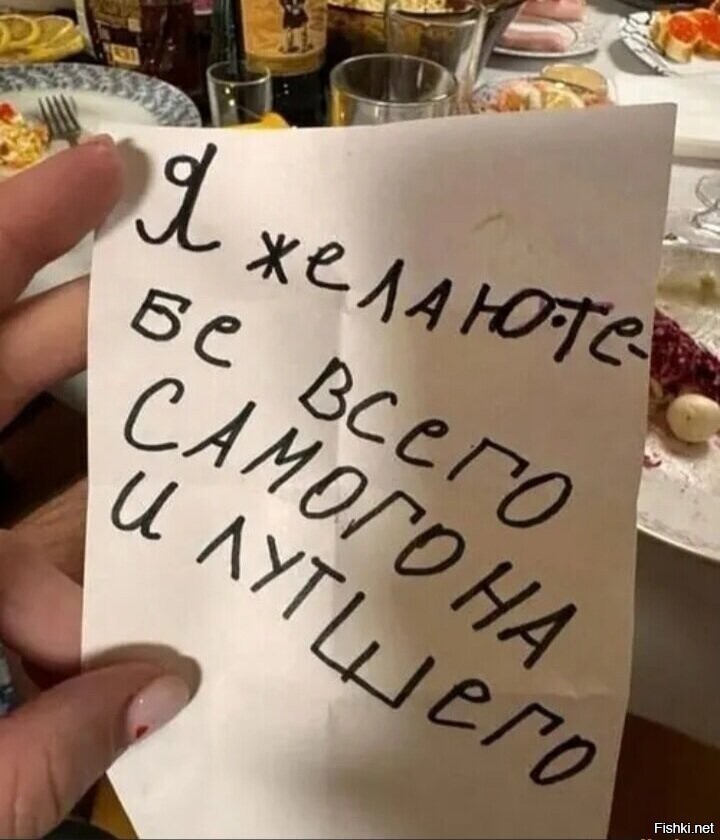 Я желаю те-
бе всего
самогона
и лутшего
Fishki.net